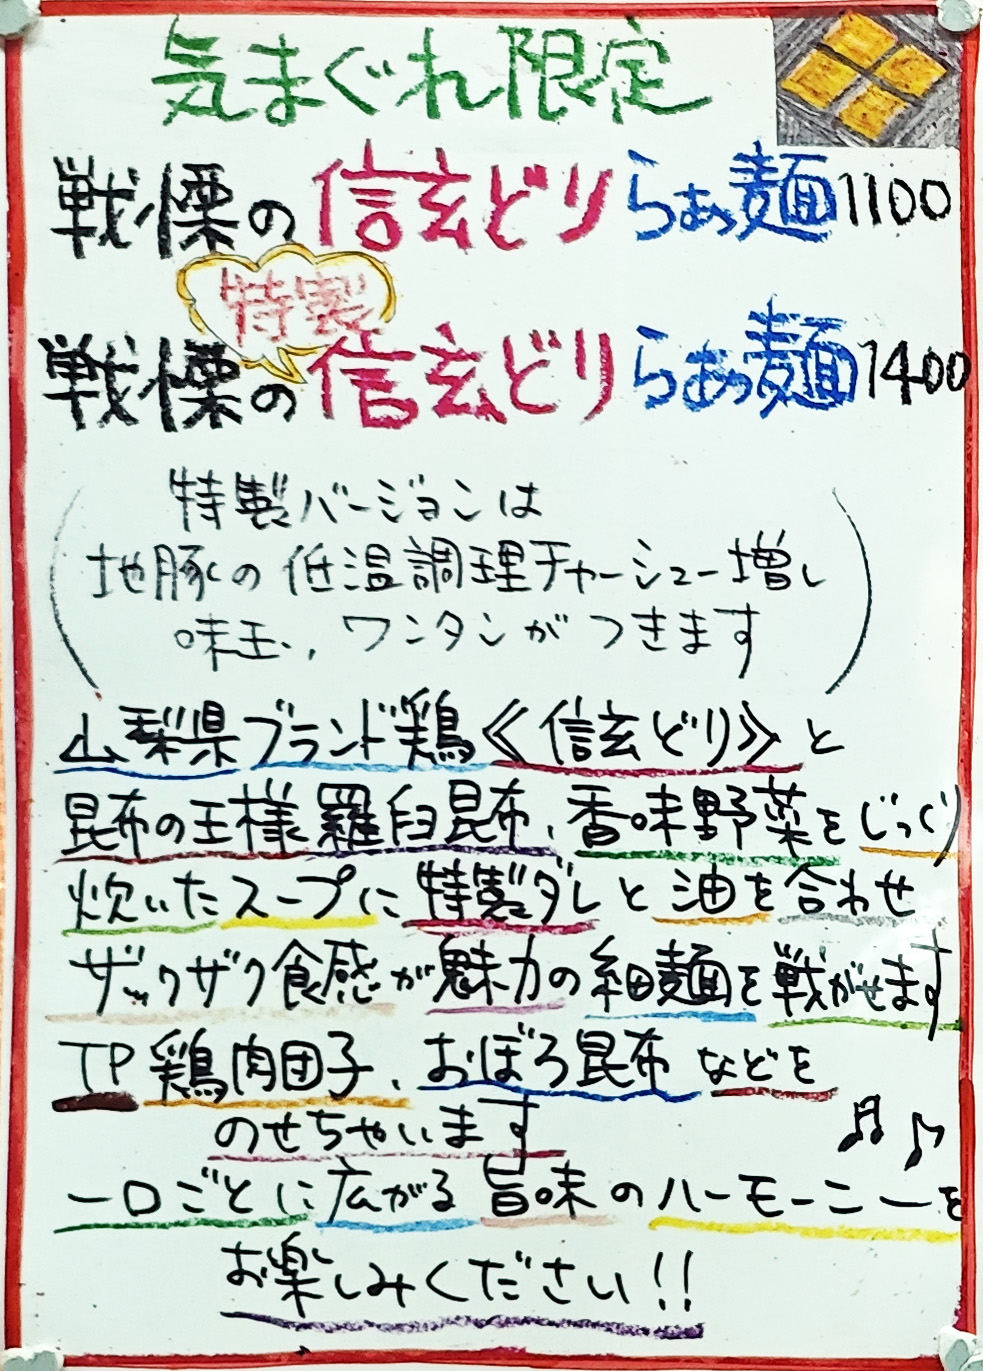 気まぐれ限定
戦慄の信玄どりらぁ麺1100
特製
戦慄の信玄どりらぁ麺1400
(特製バージョンは
地豚の低温調理チャーシュー増し
味玉、ワンタンがつきます)
山梨県ブランド鶏《信玄どり》と
昆布の王様羅臼昆布、香味野菜をじっくり
炊いたスープに特製ダレと油を合わせ
ザックザク食感が魅力の細麺を戦がせます
TP鶏肉団子、おぼろ昆布などを
のせちゃいます
一口ごとに広がる旨味のハーモニーを
お楽しみください!!